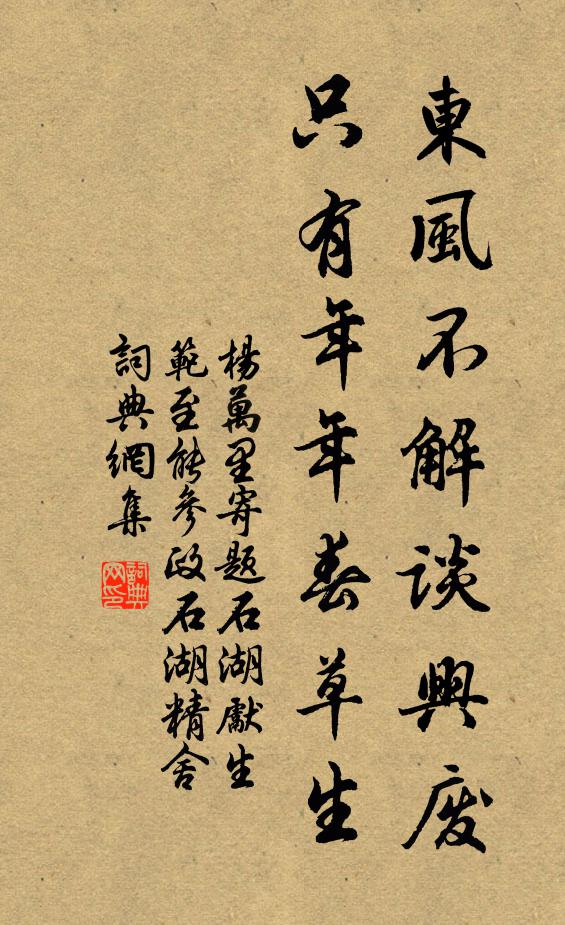 東風不解談興廢
只有年年春草生
楊萬里寄題石湖獻生
範至能參政石湖精舍
詞典網集
詞典網印